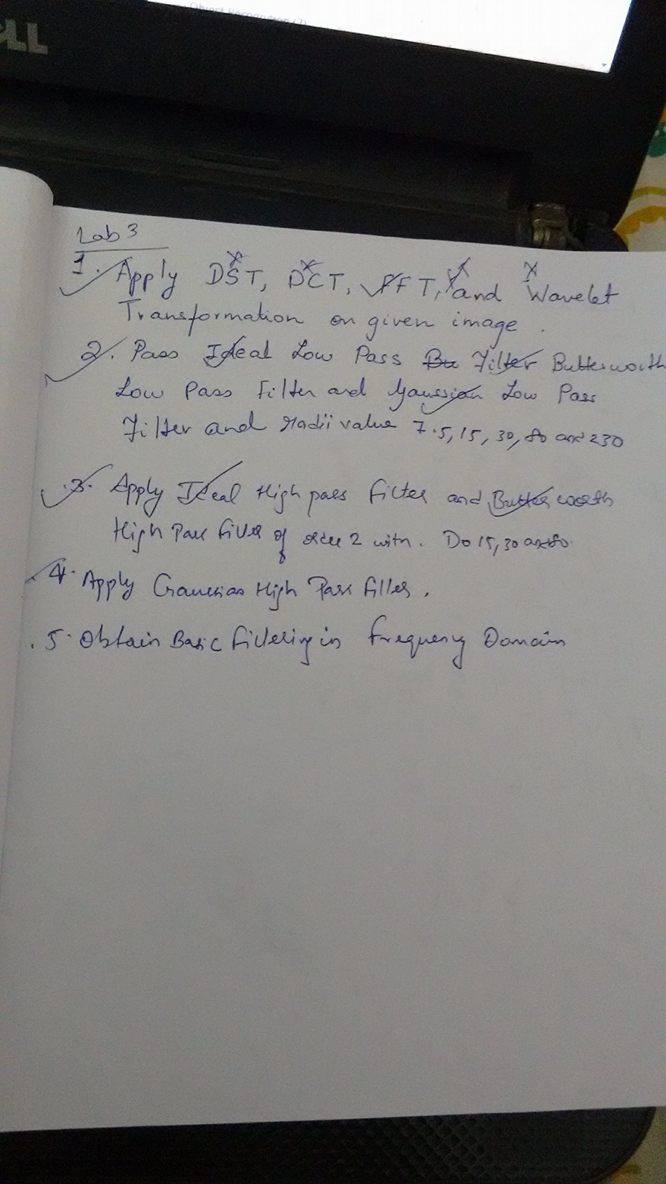 DELL
Lab 3
1. Apply DST, DCT, FFT, and Wavelet
Transformation on given image.
2. Pass Ideal Low Pass Bu Filter Butterworth
Low Pass Filter and Gaussian Low Pass
Filter and radii value 7.5, 15, 30, 80 and 230
3. Apply Ideal High pass filter and Butterworth
High Pass Filter of order 2 with. Do 15, 30 and 80.
4. Apply Gaussian High Pass Filter.
5. Obtain Basic Filtering in Frequency Domain